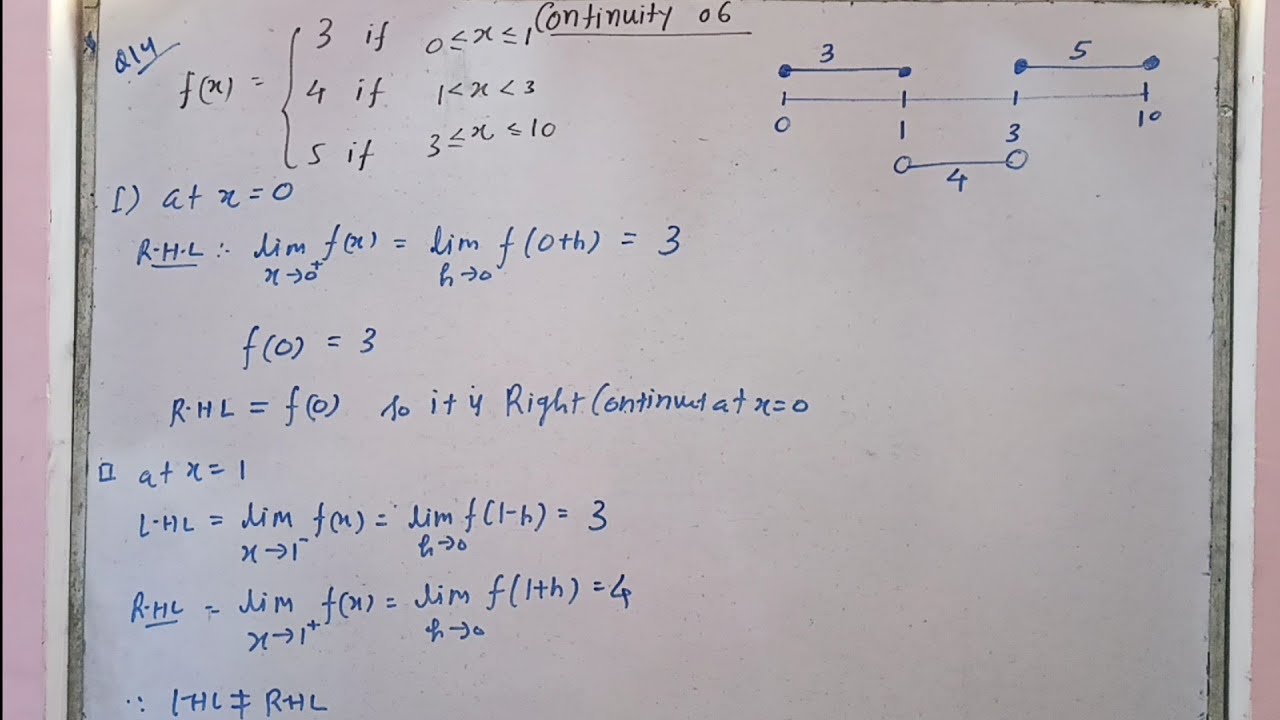 Continuity 06
Q14
f(x) = { 3 if 0 ≤ x ≤ 1
4 if 1 < x < 3
5 if 3 ≤ x ≤ 10
3 5
0 1 3 10
4
I) at x = 0
R.H.L :- lim x→0⁺ f(x) = lim h→0 f(0+h) = 3
f(0) = 3
R.HL = f(0) so it is Right Continuous at x=0
II at x = 1
L.HL = lim x→1⁻ f(x) = lim h→0 f(1-h) = 3
R.HL = lim x→1⁺ f(x) = lim h→0 f(1+h) = 4
∵ LHL ≠ RHL